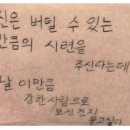 신은 버틸 수 있는
만큼의 시련을
주신다는데
날 이만큼
강한사람으로
보신건지
묻고싶다